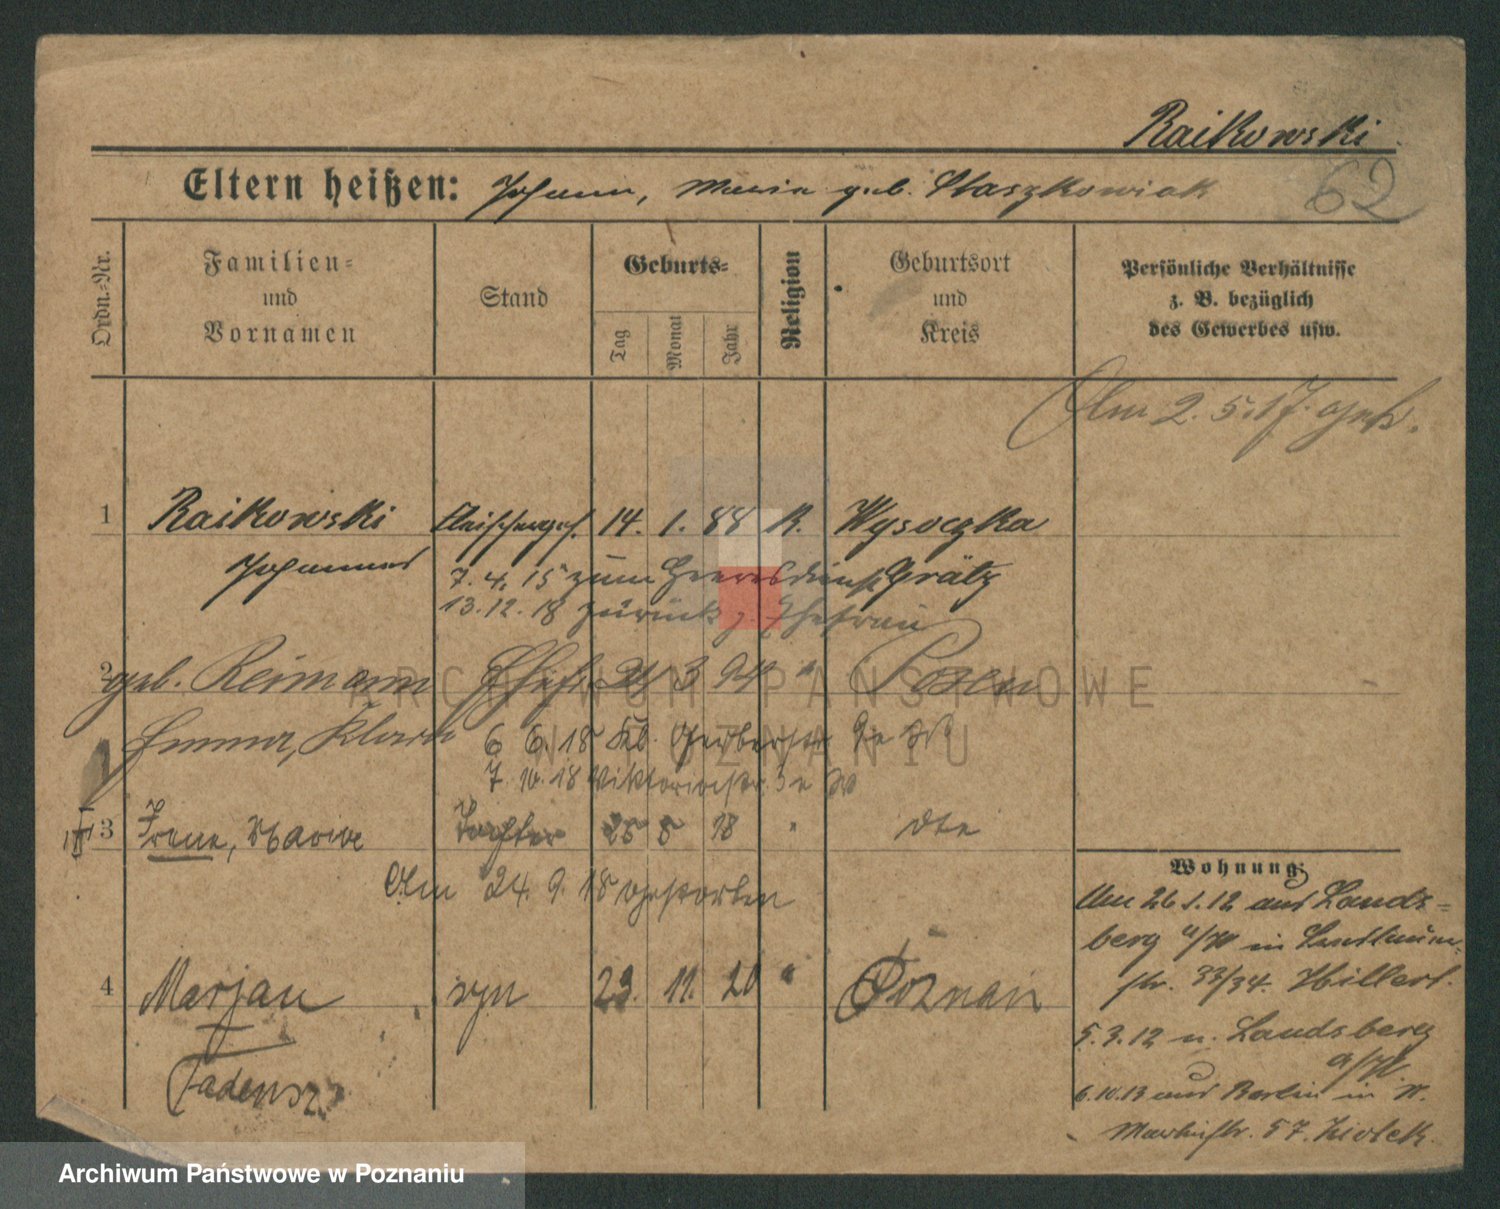 Raikowski.
62
Eltern heißen: Johann, Maria geb. Staszkowiak
Ordn.-Nr.
Familien-
und
Vornamen
Stand
Geburts-
Tag
Monat
Jahr
Religion
Geburtsort
und
Kreis
Persönliche Verhältnisse
z. B. bezüglich
des Gewerbes usw.
Am 2. 5. 17. geh.
1 Raikowski Fleischerges. 14. 1. 88 k. Wysoczka
Johannes Grätz
7. 4. 15 zum Heeresdienst
13. 12. 18 zurück z. Ehefrau
2 geb. Reimann Ehefr. 24 3 94 " Posen
Emma, Klara
6 6. 18 Kl. Gerberstr
7. 10. 18 Viktoriastr.
3 Irene, Maria Tochter 25 5 18 " dto
Am 24. 9. 18 gestorben
4 Marjan syn 23. 11. 20 " Poznań
Tadeusz
Wohnung:
Am 26. 1. 12 aus Lands-
berg a/W in
str. 33/34. Hillert.
5. 3. 12 n. Landsberg
a/W.
6. 10. 13 aus Berlin in W.
57.
ARCHIWUM PAŃSTWOWE
W POZNANIU
Archiwum Państwowe w Poznaniu